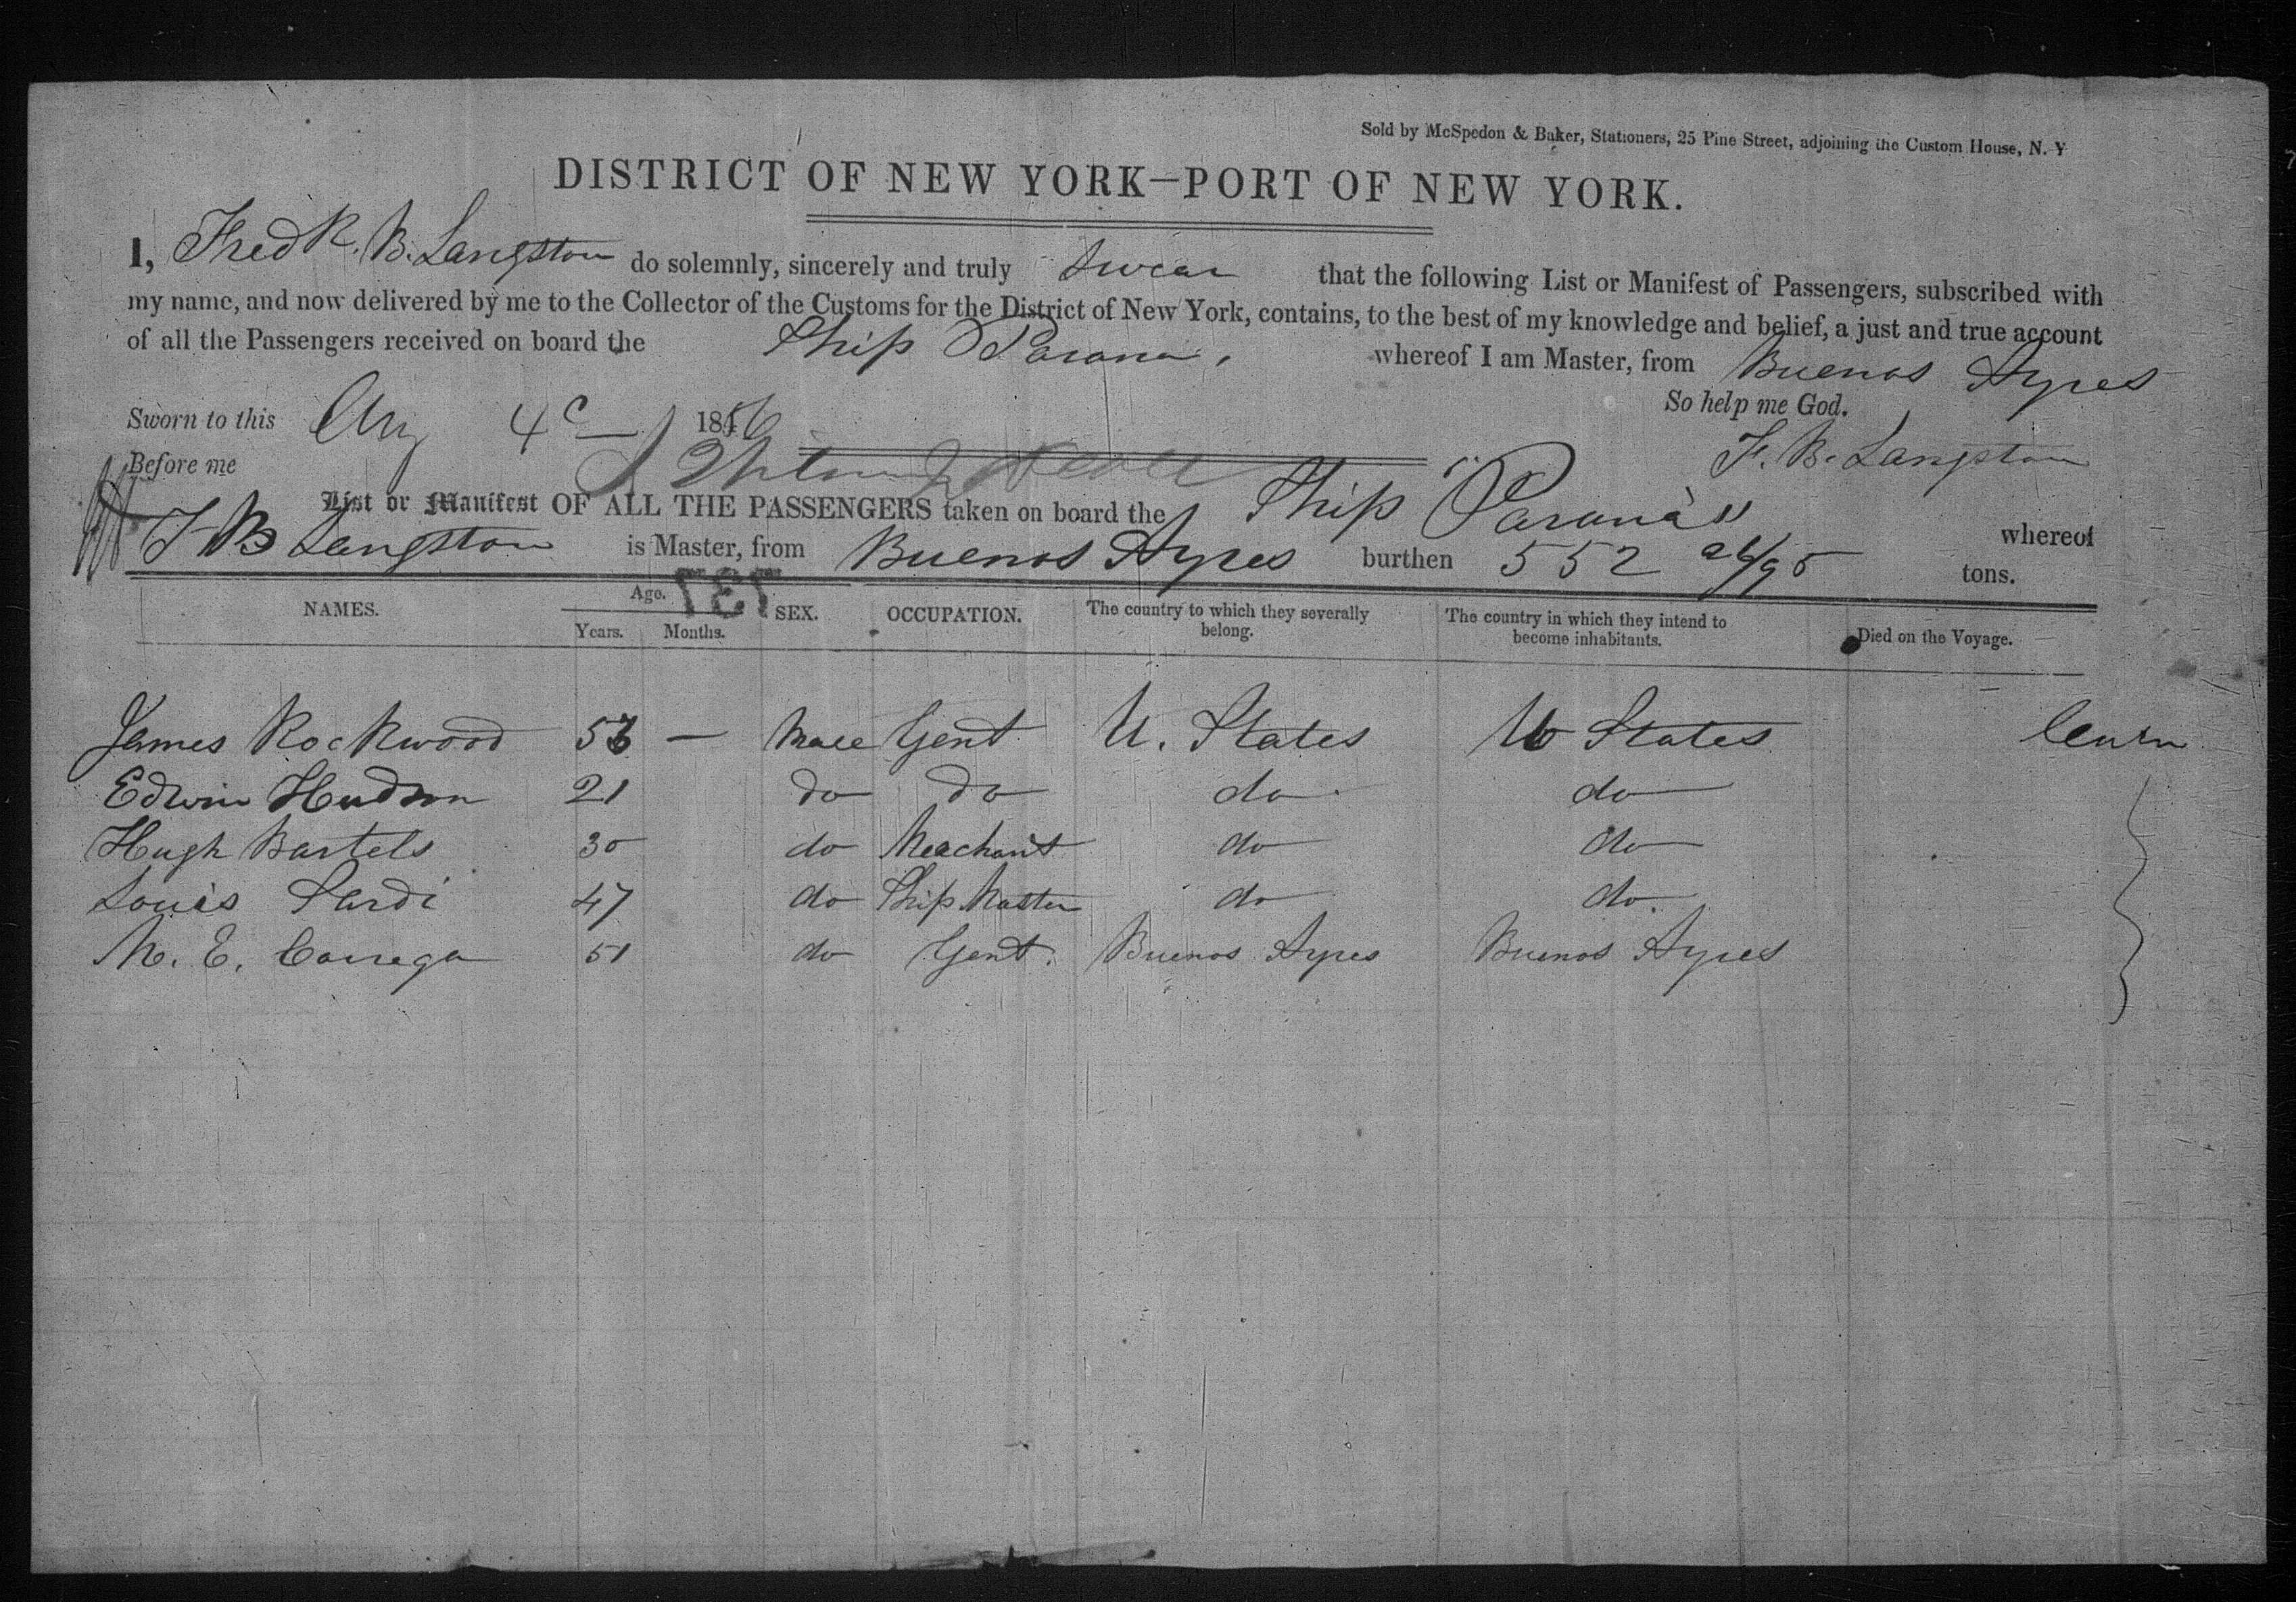 Sold by McSpedon & Baker, Stationers, 25 Pine Street, adjoining the Custom House, N. Y
DISTRICT OF NEW YORK—PORT OF NEW YORK.
I, Fredk. B. Langston do solemnly, sincerely and truly swear that the following List or Manifest of Passengers, subscribed with
my name, and now delivered by me to the Collector of the Customs for the District of New York, contains, to the best of my knowledge and belief, a just and true account
of all the Passengers received on board the Ship Parana, whereof I am Master, from Buenos Ayres
So help me God.
Sworn to this Aug 4 1856
F. B. Langston
Before me
List or Manifest OF ALL THE PASSENGERS taken on board the Ship "Parana" whereof
F B Langston is Master, from Buenos Ayres burthen 552 26/95 tons.
737
NAMES. Age. Years. Months. SEX. OCCUPATION. The country to which they severally belong. The country in which they intend to become inhabitants. Died on the Voyage.
James Rockwood — Male Gent U. States U States Cabin
Edwin Hudson 21 do do do do
Hugh Bartels 30 do Merchant do do
Louis Sardi 47 do Ship Master do do
M. E. Carrega 51 do Gent. Buenos Ayres Buenos Ayres